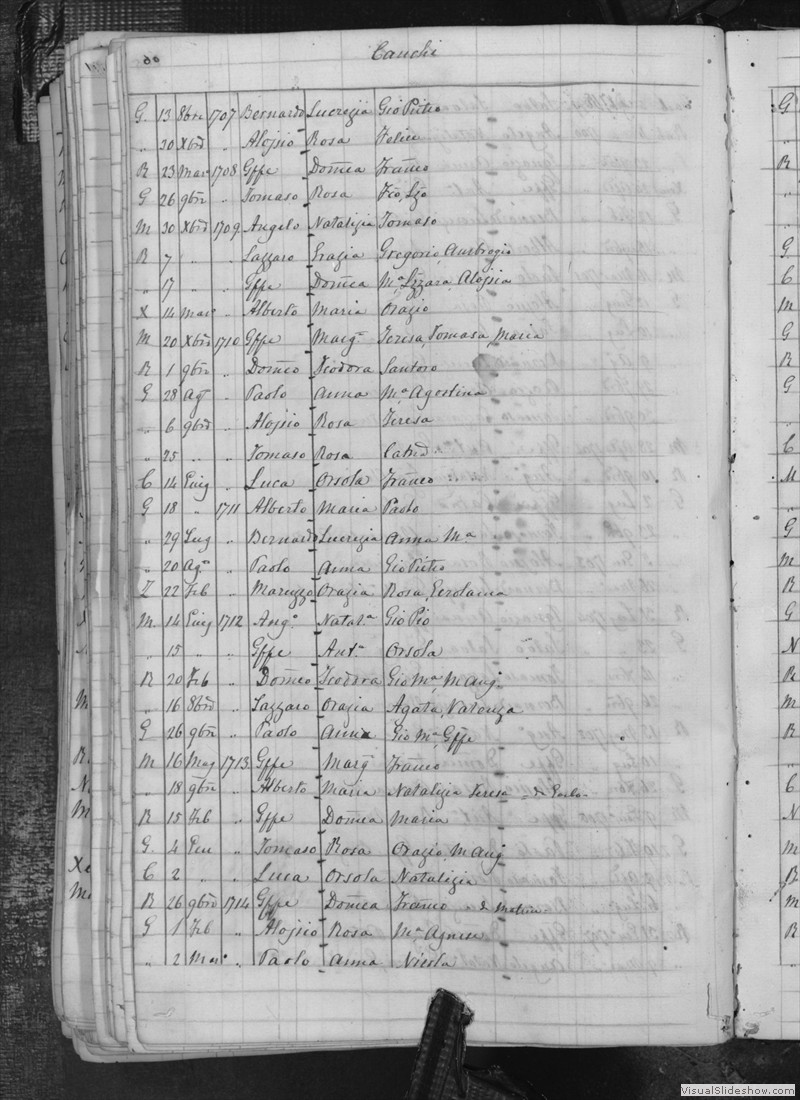 60
Cauchi
G. 13 8bre 1707 Bernardo Lucrezia Gio Pietro
" 30 Xbre " Alojsio Rosa Felice
R 23 Mar 1708 Gffe Domca Franco
G 26 9bre " Tomaso Rosa
M 30 Xbre 1709 Angelo Natalizia Tomaso
R 7 " " Lazzaro Grazia Gregorio, Ambrogio
" 17 " " Gffe Domca Ma Lazzara, Alojsia
X 14 Mar " Alberto Maria Orazio
M 20 Xbre 1710 Gffe Marga Teresa, Tomasa, Maria
R 1 9bre " Domco Teodora Santoro
G 28 Agto " Paolo Anna Ma Agostina
" 6 9bre " Alojsio Rosa Teresa
" 25 " " Tomaso Rosa Catna
C 14 Giug Luca Orsola Franco
G 18 " 1711 Alberto Maria Paolo
" 29 Lug " Bernardo Lucrezia Anna Ma
" 20 Ago " Paolo Anna Gio Pietro
Z 22 Feb " Marcuzzo Orazia Rosa, Gerolama
M 14 Giug 1712 Ango Natala Gio Pio
" 15 " " Gffe Anta Orsola
R 20 Feb " Domco Teodora Gio Ma, M Ang
" 16 8bre " Lazzaro Orazia Agata, Valenza
G 26 9bre " Paolo Anna Gio Ma Gffe
M 16 Mag 1713 Gffe Marga Franco
" 18 9bre " Alberto Maria Natalizia Teresa
R 15 Feb " Gffe Domca Maria
G. 4 Gen " Tomaso Rosa Orazio, M Ang
C 2 " " Luca Orsola Natalizia
R 26 9bre 1714 Gffe Domca Franco
G 1 Feb " Alojsio Rosa Ma Agnese
" 2 Mar " Paolo Anna Nicola
VisualSlideshow.com